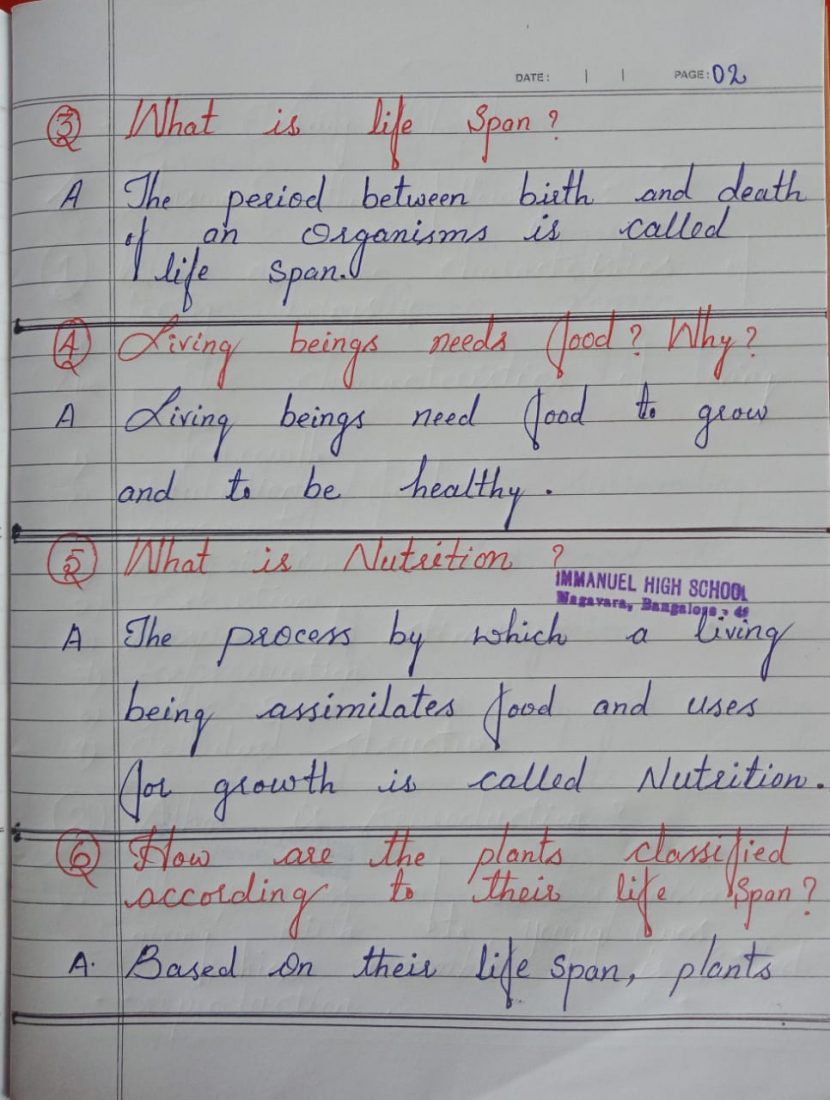 DATE: | | PAGE: 02
Q3 What is life span?
A The period between birth and death
of an organisms is called
life span.
Q4 Living beings needs food? Why?
A Living beings need food to grow
and to be healthy.
Q5 What is Nutrition?
IMMANUEL HIGH SCHOOL
Nagavara, Bangalore - 45
A The process by which a living
being assimilates food and uses
for growth is called Nutrition.
Q6 How are the plants classified
according to their life span?
A. Based on their life span, plants